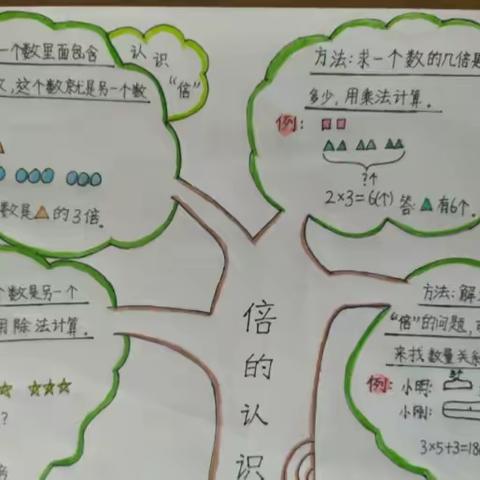 一个数里面包含
这个数就是另一个数
数是▲的3倍。
认识
“倍”
方法:求一个数的几倍是
多少,用乘法计算。
例:
?个
2×3=6(个) 答:▲有6个。
个数是另一个
用除法计算。
?
倍
的
认
识
方法:解
“倍”的问题,
来找数量关系
例:小明:
小刚:
3×5+3=18